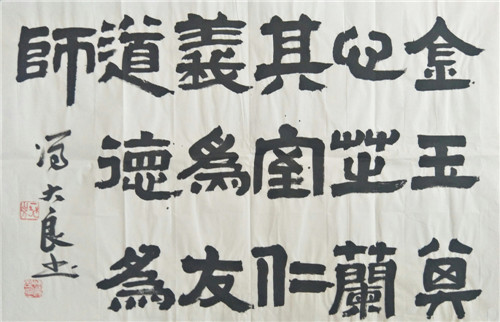 金玉其
心芷蘭
其室仁
義為友
道德為
師
馮大良书